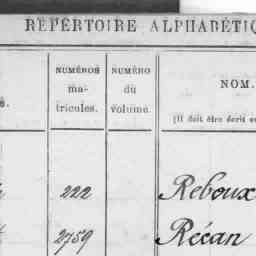 RÉPERTOIRE ALPHABÉTIQ
NUMÉROS
ma-
tricules.
NUMÉRO
du
volume.
NOM.
(Il doit être écrit en
222
Reboux
2759
Récan